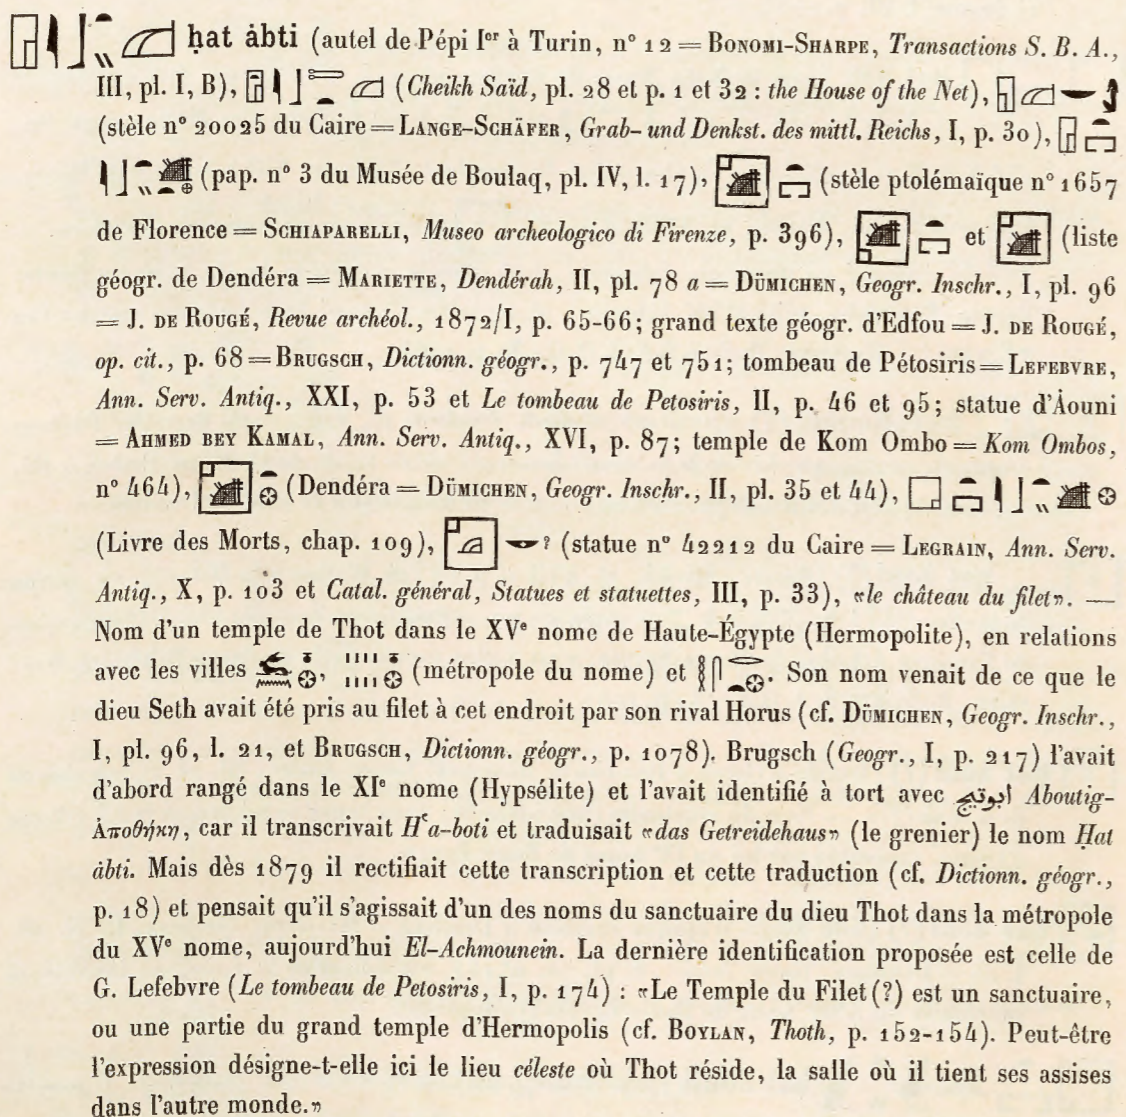 ḥat ȧbti (autel de Pépi Iᵉʳ à Turin, n° 12 = BONOMI-SHARPE, Transactions S. B. A.,
III, pl. I, B), (Cheikh Saïd, pl. 28 et p. 1 et 32 : the House of the Net),
(stèle n° 20025 du Caire = LANGE-SCHÄFER, Grab- und Denkst. des mittl. Reichs, I, p. 30),
(pap. n° 3 du Musée de Boulaq, pl. IV, l. 17), (stèle ptolémaïque n° 1657
de Florence = SCHIAPARELLI, Museo archeologico di Firenze, p. 396), et (liste
géogr. de Dendéra = MARIETTE, Dendérah, II, pl. 78 a = DÜMICHEN, Geogr. Inschr., I, pl. 96
= J. DE ROUGÉ, Revue archéol., 1872/I, p. 65-66; grand texte géogr. d'Edfou = J. DE ROUGÉ,
op. cit., p. 68 = BRUGSCH, Dictionn. géogr., p. 747 et 751; tombeau de Pétosiris = LEFEBVRE,
Ann. Serv. Antiq., XXI, p. 53 et Le tombeau de Petosiris, II, p. 46 et 95; statue d'Ȧouni
= AHMED BEY KAMAL, Ann. Serv. Antiq., XVI, p. 87; temple de Kom Ombo = Kom Ombos,
n° 464), (Dendéra = DÜMICHEN, Geogr. Inschr., II, pl. 35 et 44),
(Livre des Morts, chap. 109), ? (statue n° 42212 du Caire = LEGRAIN, Ann. Serv.
Antiq., X, p. 103 et Catal. général, Statues et statuettes, III, p. 33), «le château du filet». —
Nom d'un temple de Thot dans le XVᵉ nome de Haute-Égypte (Hermopolite), en relations
avec les villes , (métropole du nome) et . Son nom venait de ce que le
dieu Seth avait été pris au filet à cet endroit par son rival Horus (cf. DÜMICHEN, Geogr. Inschr.,
I, pl. 96, l. 21, et BRUGSCH, Dictionn. géogr., p. 1078). Brugsch (Geogr., I, p. 217) l'avait
d'abord rangé dans le XIᵉ nome (Hypsélite) et l'avait identifié à tort avec ابوتيج Aboutig-
Ἀποθήκη, car il transcrivait Hʿa-boti et traduisait «das Getreidehaus» (le grenier) le nom Ḥat
ȧbti. Mais dès 1879 il rectifiait cette transcription et cette traduction (cf. Dictionn. géogr.,
p. 18) et pensait qu'il s'agissait d'un des noms du sanctuaire du dieu Thot dans la métropole
du XVᵉ nome, aujourd'hui El-Achmounein. La dernière identification proposée est celle de
G. Lefebvre (Le tombeau de Petosiris, I, p. 174) : «Le Temple du Filet (?) est un sanctuaire,
ou une partie du grand temple d'Hermopolis (cf. BOYLAN, Thoth, p. 152-154). Peut-être
l'expression désigne-t-elle ici le lieu céleste où Thot réside, la salle où il tient ses assises
dans l'autre monde.»